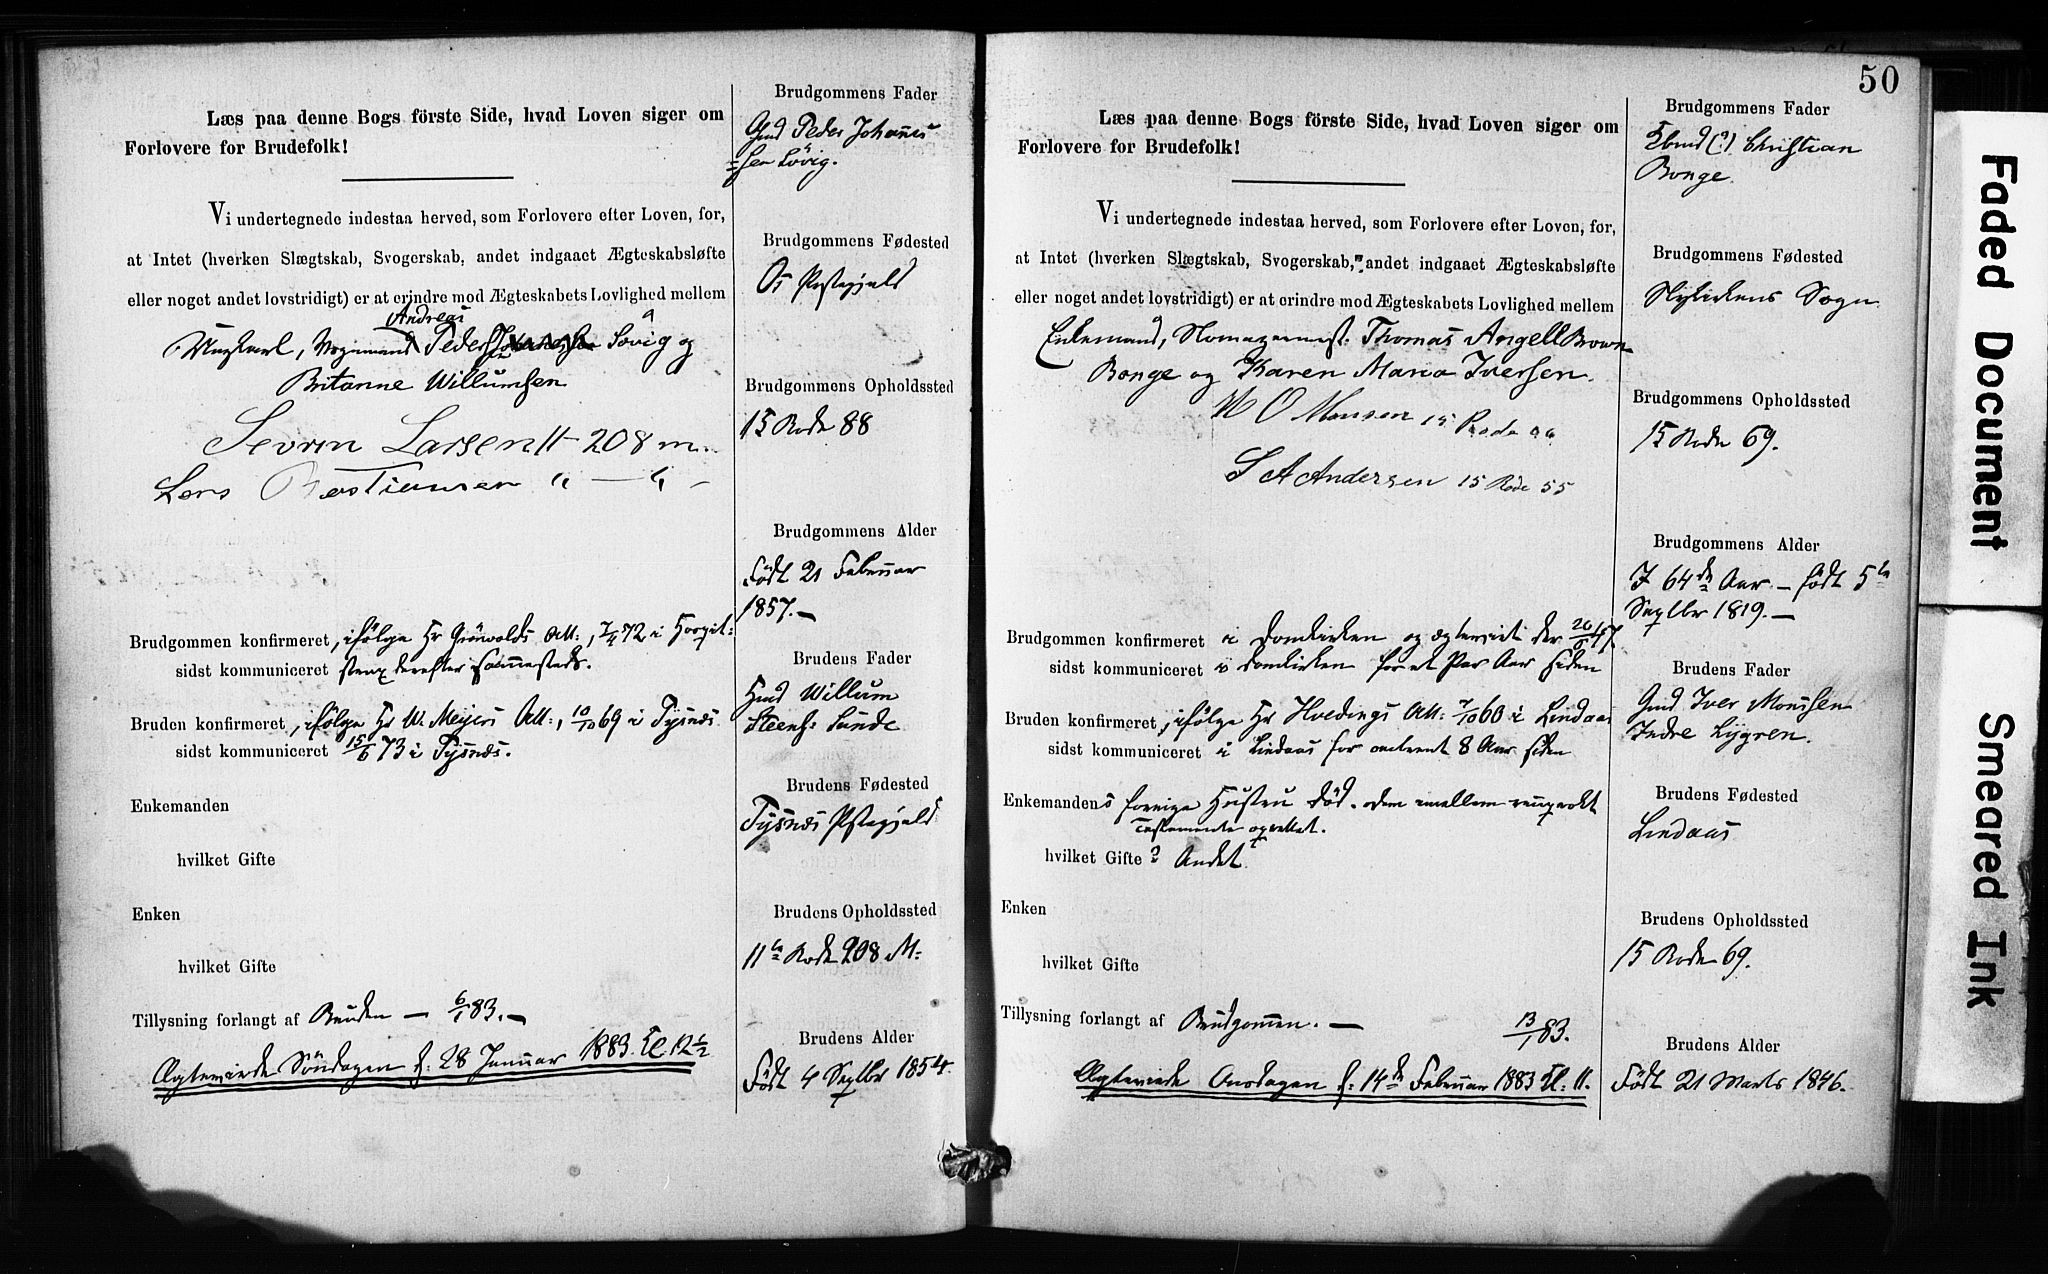 Læs paa denne Bogs förste Side, hvad Loven siger om
Forlovere for Brudefolk!
Vi undertegnede indestaa herved, som Forlovere efter Loven, for,
at Intet (hverken Slægtskab, Svogerskab, andet indgaaet Ægteskabsløfte
eller noget andet lovstridigt) er at erindre mod Ægteskabets Lovlighed mellem
Andreas
Ungkarl, Vognmand Peders Lövig og
Britanne Willumsen
Sevrin Larsen 11 - 208 m
Lars
Brudgommen konfirmeret, ifölge Hr Grönvolds Att:, 7/4 72 i Hospit:
sidst kommuniceret strax derefter sammesteds.
Bruden konfirmeret, ifölge Hr W. Meyers Att:, 10/10 69 i Tysnæs
sidst kommuniceret 15/6 73 i Tysnæs.
Enkemanden
hvilket Gifte
Enken
hvilket Gifte
Tillysning forlangt af Bruden — 6/1 83. —
Ægteviede Söndagen d: 28 Januar 1883 Kl 12 1/2
Brudgommens Fader
Gmd Peder Johannes
=sen Lövig.
Brudgommens Fødested
Os Pstegjeld
Brudgommens Opholdssted
15 Rode 88
Brudgommens Alder
Födt 21 Februar
1857. —
Brudens Fader
Hmd Willum
Steens: Sunde
Brudens Fødested
Tysnæs Pstegjeld
Brudens Opholdssted
11te Rode 208 M:
Brudens Alder
Födt 4 Septbr 1854.
50
Læs paa denne Bogs förste Side, hvad Loven siger om
Forlovere for Brudefolk!
Vi undertegnede indestaa herved, som Forlovere efter Loven, for,
at Intet (hverken Slægtskab, Svogerskab, andet indgaaet Ægteskabsløfte
eller noget andet lovstridigt) er at erindre mod Ægteskabets Lovlighed mellem
Enkemand, Thomas Angell Brown
Bonge og Karen Maria Iversen.
M O Monsen 15 Rode
S A Andersen 15 Rode 55
Brudgommen konfirmeret i Domkirken og ægteviet der 20/5 47.
sidst kommuniceret i Domkirken for et Par Aar siden
Bruden konfirmeret, ifölge Hr Hvedings Att: 7/10 60 i Lindaas
sidst kommuniceret i Lindaas for omtrent 8 Aar siden
Enkemandens forrige Hustru död. Dem imellem reciprokt
Testamente oprettet.
hvilket Gifte? Andet
Enken
hvilket Gifte
Tillysning forlangt af Brudgommen. — 13/1 83.
Ægteviede Onsdagen d: 14de Februar 1883 Kl: 11.
Brudgommens Fader
(?) Christian
Bonge.
Brudgommens Fødested
Nykirkens Sogn
Brudgommens Opholdssted
15 Rode 69.
Brudgommens Alder
I 64de Aar. — födt 5te
Septbr 1819. —
Brudens Fader
Gmd Iver Monssen
Indre Lygren.
Brudens Fødested
Lindaas
Brudens Opholdssted
15 Rode 69.
Brudens Alder
Födt 21 Marts 1846.
Faded Document
Smeared Ink